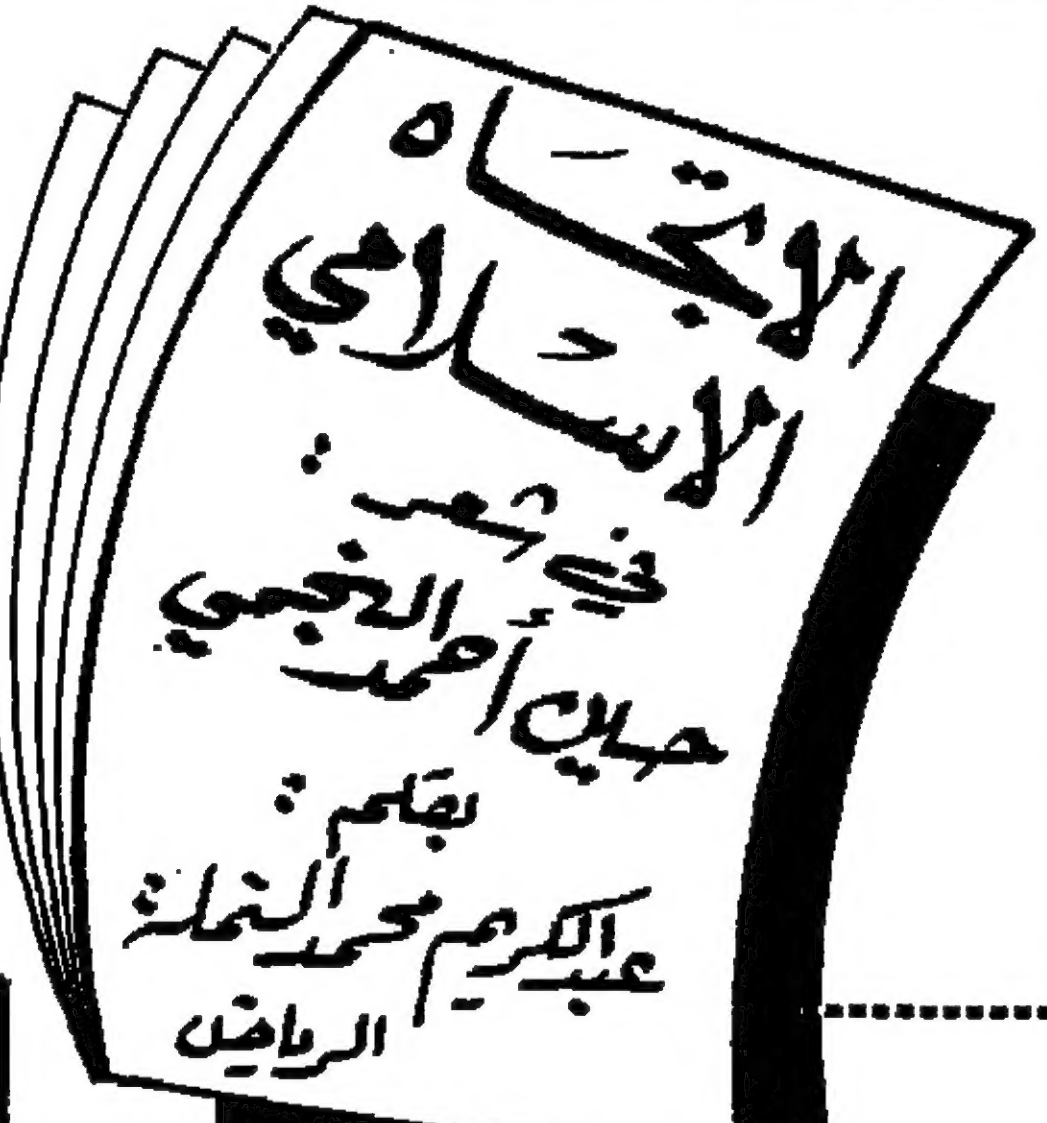 الاتجَاه
الاسَلامي
في شعر :
حسين أحمد النجمي
بقَلم :
عبدالكريم محمد النملة
الرياض